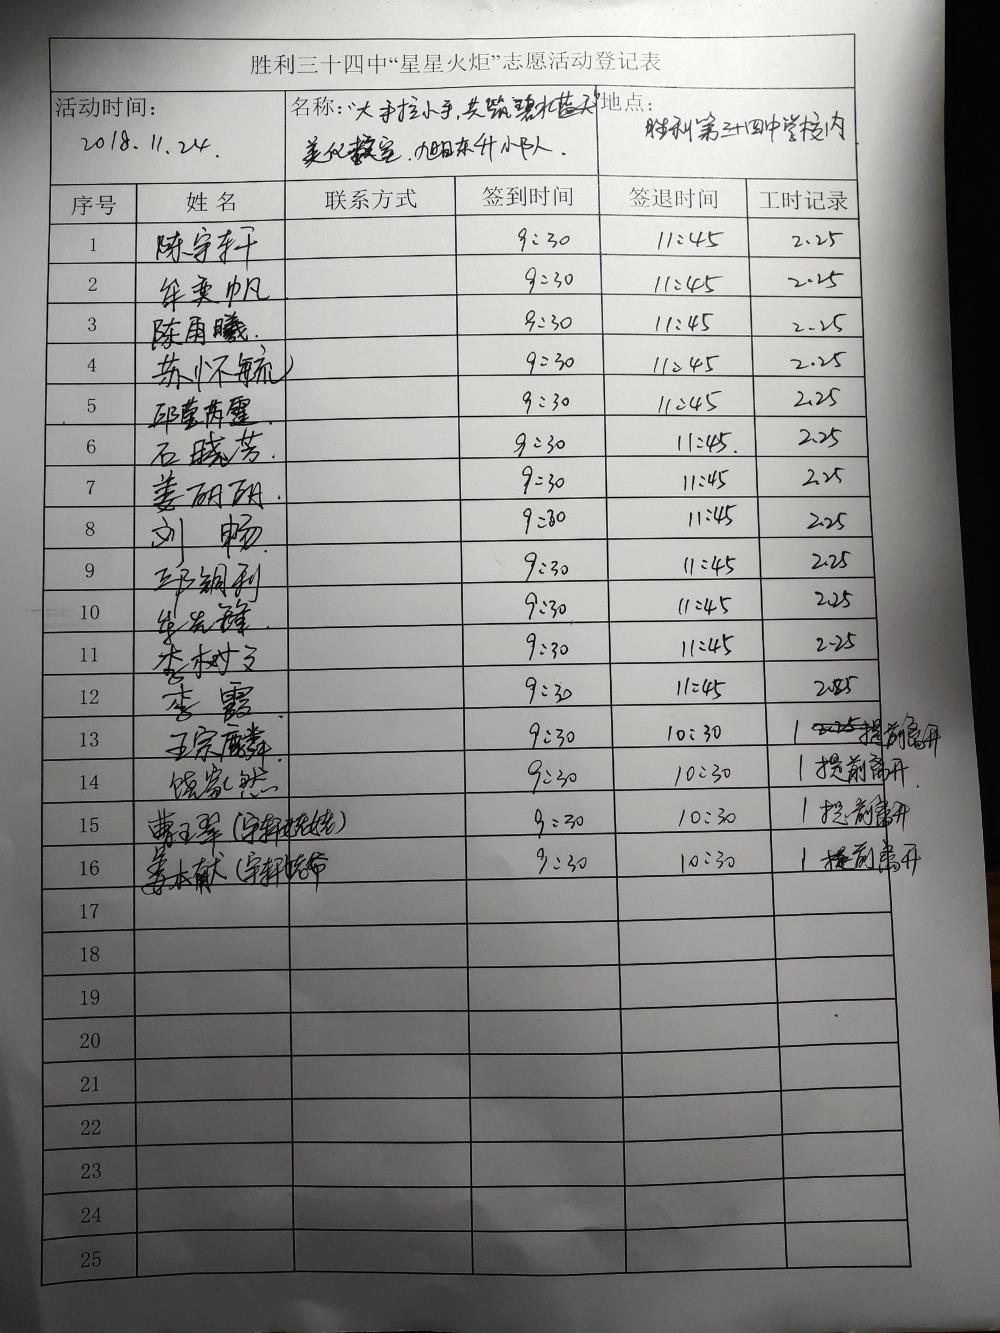 胜利三十四中“星星火炬”志愿活动登记表
活动时间： 名称：“大手拉小手，共筑碧水蓝天” 地点：
2018.11.24. 美化教室，旭日东升小队人. 胜利第三十四中学校内
序号 姓名 联系方式 签到时间 签退时间 工时记录
1 陈宇轩 9:30 11:45 2.25
2 牟奕帆 9:30 11:45 2.25
3 陈雨曦. 9:30 11:45 2.25
4 苏怀毓 9:30 11:45 2.25
5 邱莹芮霆. 9:30 11:45 2.25
6 石晓芳. 9:30 11:45. 2.25
7 姜丽丽. 9:30 11:45 2.25
8 刘畅. 9:30 11:45 2.25
9 邱钢利 9:30 11:45 2.25
10 牟先锋. 9:30 11:45 2.25
11 李树文 9:30 11:45 2.25
12 李霞. 9:30 11:45 2.25
13 王宗麟. 9:30 10:30 1 2.25 提前离开
14 饶家然 9:30 10:30 1 提前离开
15 曹玉翠（宇轩姥姥） 9:30 10:30 1 提前离开
16 姜本献（宇轩姥爷 9:30 10:30 1 提前离开
17
18
19
20
21
22
23
24
25